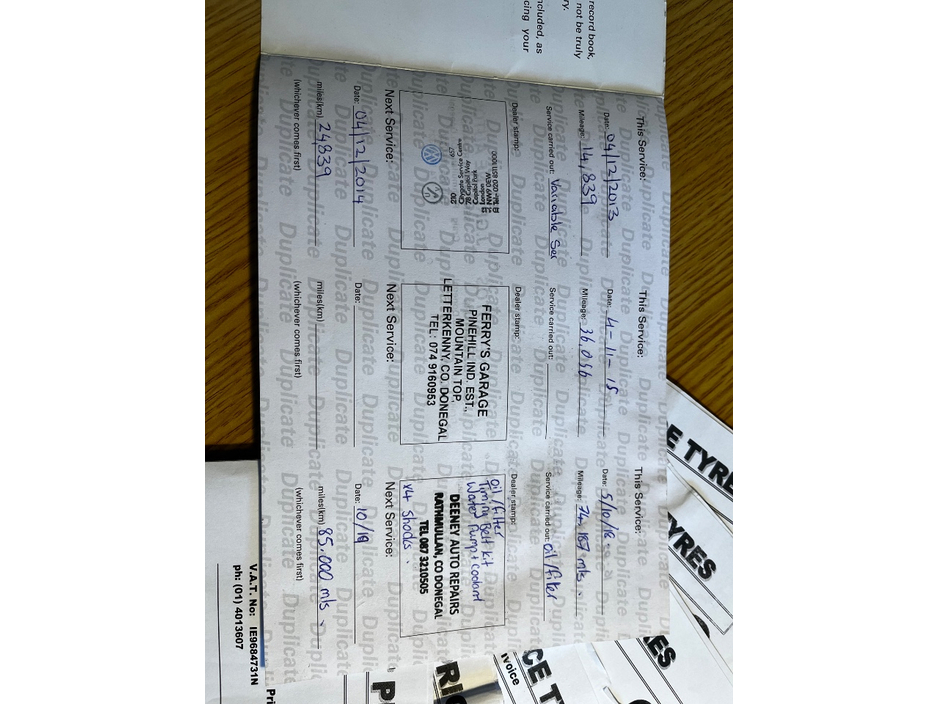 record book,
not be truly
ry.
ncluded, as
cing your
This Service:
Date: 04/12/2013
Mileage: 14,839
Service carried out: Variable Ser
Dealer stamp:
Next Service:
Date: 04/12/2014
miles(km) 24,839
(whichever comes first)
This Service:
Date: 4-11-15
Mileage: 36,046
Service carried out:
Dealer stamp:
FERRY'S GARAGE
PINEHILL IND. EST.,
MOUNTAIN TOP,
LETTERKENNY, CO. DONEGAL
TEL: 074 9160953
Next Service:
Date:
miles(km)
(whichever comes first)
This Service:
Date: 5/10/18
Mileage: 74,187 mls.
Service carried out: oil/filter
Dealer stamp:
oil/filter
Timing Belt kit
Water Pump + Coolant
DEENEY AUTO REPAIRS
RATHMULLAN, CO DONEGAL
TEL 087 3210505
x4 shocks.
Next Service:
Date: 10/19
miles(km) 85,000 mls
(whichever comes first)
V.A.T. No: IE9684731N
ph: (01) 4013607
E TYRE
YRES
ES
CE T
voice
RI
Pri
P